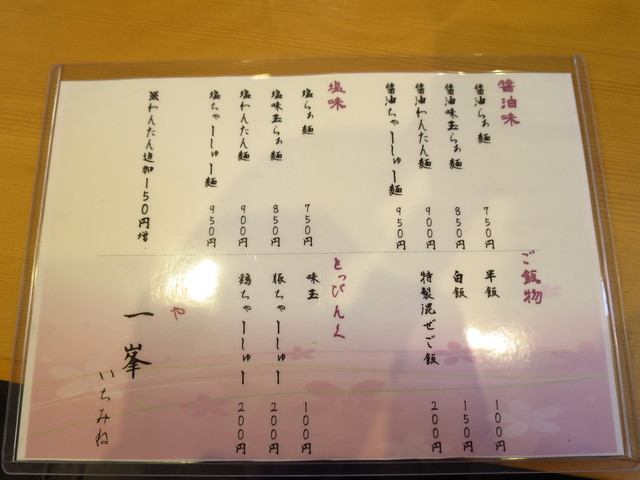 醤油味
醤油らぁ麺 750円
醤油味玉らぁ麺 850円
醤油わんたん麺 900円
醤油ちゃーしゅー麺 950円
塩味
塩らぁ麺 750円
塩味玉らぁ麺 850円
塩わんたん麺 900円
塩ちゃーしゅー麺 950円
※わんたん追加150円増
ご飯物
半飯 100円
白飯 150円
特製混ぜご飯 200円
とっぴんぐ
味玉 100円
豚ちゃーしゅー 200円
鶏ちゃーしゅー 200円
や
一峯
いちみね